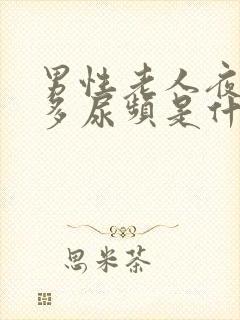 男性老人夜
多尿頻是什
思米茶